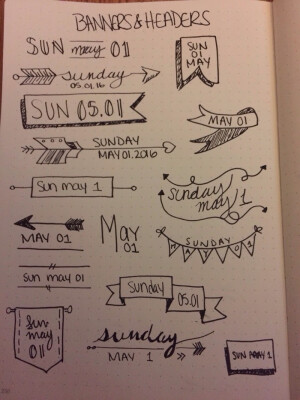 BANNERS & HEADERS
SUN may 01
SUN
01
MAY
Sunday
05.01.16
SUN 05.01
MAY 01
SUNDAY
MAY 01.2016
Sun may 1
Sunday
may 1
MAY 01
May
01
SUNDAY
MAY 01
sun may 01
Sunday
05.01
Sun
may
01
sunday
MAY 1
SUN MAY 1